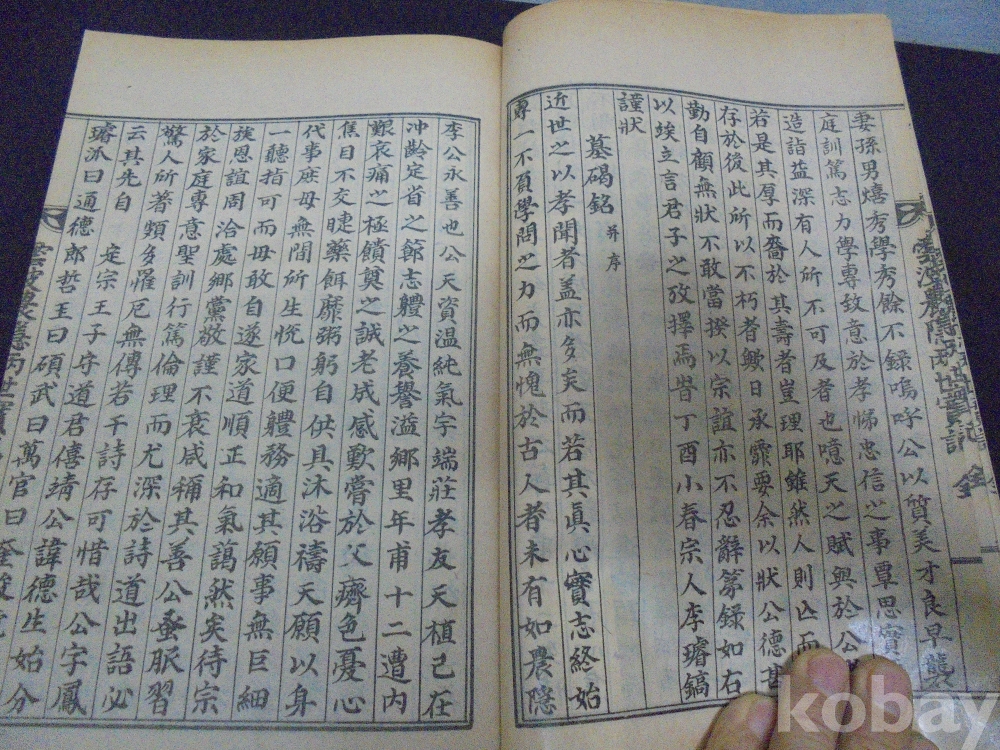 妻孫男熺秀學秀餘不錄嗚呼公以質美才良早襲
庭訓篤志力學專致意於孝悌忠信之事覃思實
造詣益深有人所不可及者也噫天之賦與於公
若是其厚而嗇於其壽者豈理耶雖然人則亡而
存於後此所以不朽者歟日承霨要余以狀公德甚
勤自顧無狀不敢當揆以宗誼亦不忍辭篆錄如右
以竢立言君子之攷擇焉昔丁酉小春宗人李璿鎬
謹狀
墓碣銘 并序
近世之以孝聞者盖亦多矣而若其眞心實志終始
專一不負學問之力而無愧於古人者未有如農隱
李公永善也公天資温純氣宇端莊孝友天植已在
冲齡定省之節志軆之養譽溢鄉里年甫十二遭内
艱哀痛之極饋奠之誠老成感歎嘗於父癠色憂心
焦目不交睫藥餌靡粥躬自供具沐浴禱天願以身
代事庶母無間所生悅口便軆務適其願事無巨細
一聽指可而毋敢自遂家道順正和氣藹然矣待宗
族恩誼周洽處鄉黨敬謹不衰咸稱其善公蚤服習
於家庭專意聖訓行篤倫理而尤深於詩道出語必
驚人所著類多罹厄無傳若干詩存可惜哉公字鳳
云其先自 定宗王子守道君僖靖公諱德生始分
璿派曰通德郎哲王曰碩武曰萬官曰奎
實記
kobay